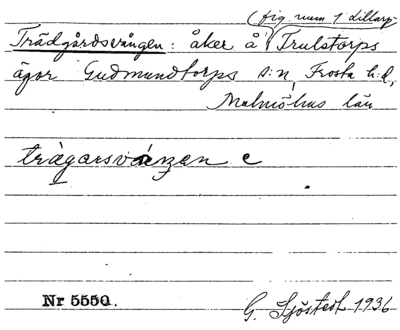 (fig. num 1 dillarp
Trädgårdsvången: åker å Trulstorps
ägor Gudmundtorps s:n, Frosta h:d,
Malmöhus län
trägarsvånzen c
Nr 5550.
G. Sjöstedt 1936